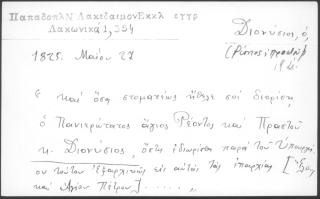 ΠαπαδοπλΝ ΛακεδαιμονΕκκλ εγγρ
Λακωνικά 1, 354
Διονύσιος, ὁ,
1825. Μαίου 27
" καὶ ὅσα στοματικῶς ἤθελε σοὶ διορίση
ὁ Πανιερώτατος ἅγιος Ρέοντος καὶ Πραστοῦ
κ. Διονύσιος, ὅστις ἐδιωρίσθη παρὰ τοῦ Ὑπουργεί
ου τούτου Ἐξαρχικῶς εἰς αὐτὰς τὰς ἐπαρχίας [
καὶ Ἁγίου Πέτρου] . . . . . "